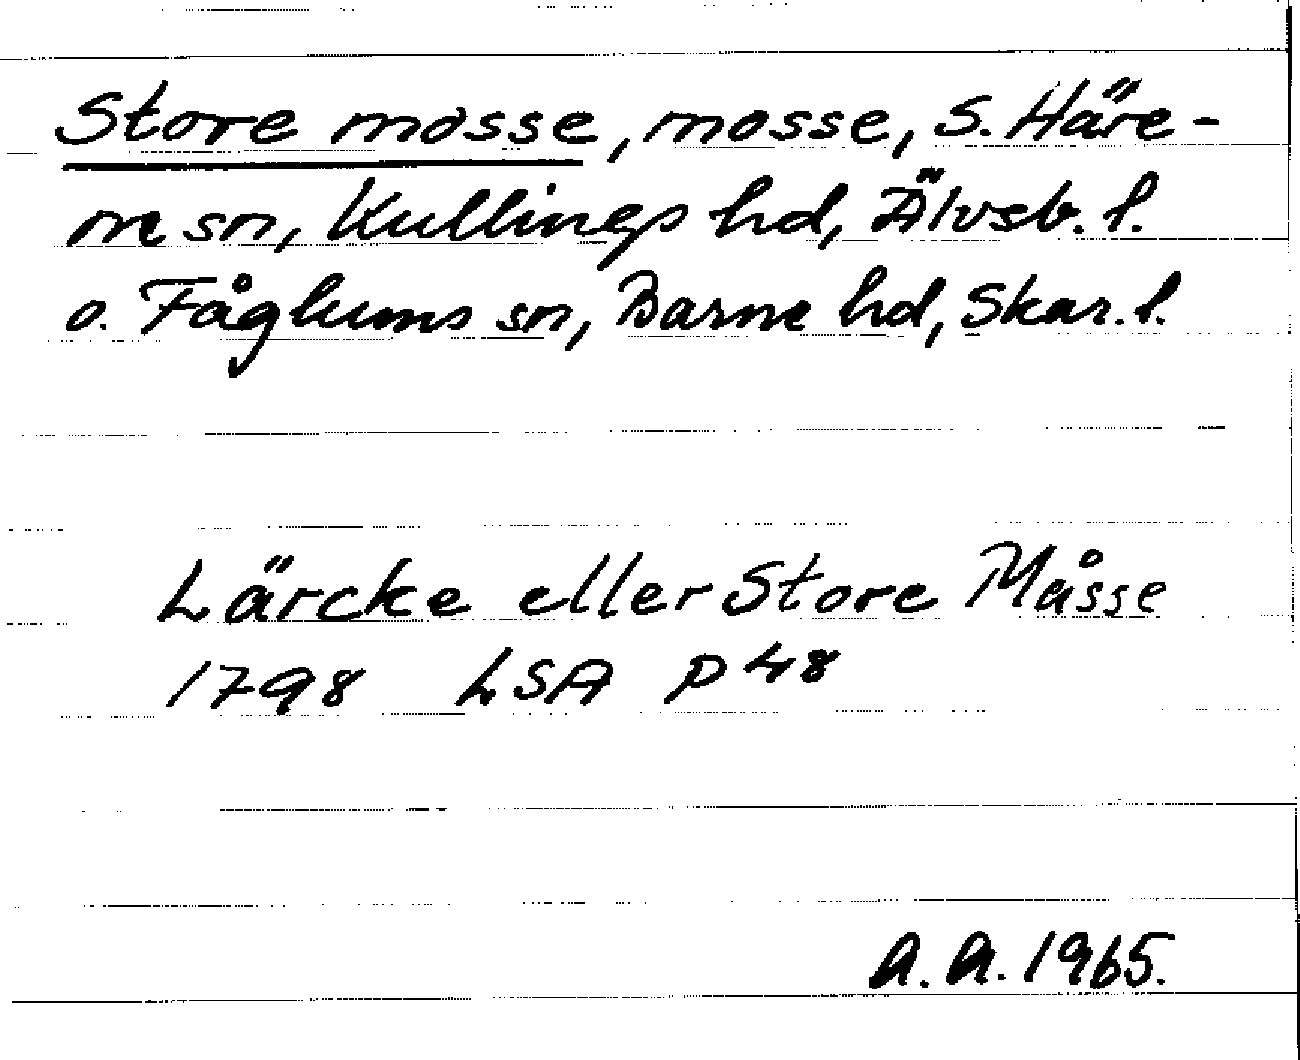 Store mosse, mosse, S. Häre-
ne sn, Kullings hd, Älvsb. l.
o. Fåglums sn, Barne hd, Skar. l.
Lärcke eller Store Måsse
1798 LSA P48
A.A. 1965.